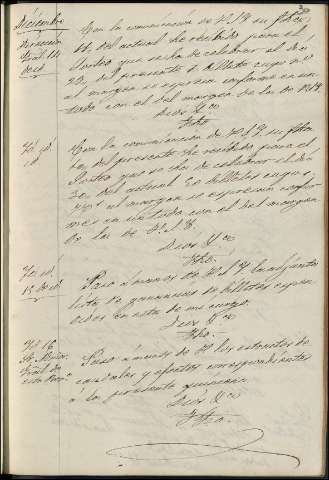 Diciembre
Dirección
Gral. 14
de id
Con la comunicación de V.S.Y. su fha
11 del actual he recibido para el
Sorteo que se ha de celebrar el dia
22 del presente billetes cuyo nº
al margen se espresa conforme en un
todo con el del margen de la de V.S.Y.
Dios &ca
Fho
Id. id.
Con la comunicación de V.S.Y. su fha
del presente he recibido para el
Sorteo que se ha de celebrar el dia
30 del actual 50 billetes cuyos
nºs al margen se espresan confor
mes en un todo con el del margen
de la de V.S.Y.
Dios &ca
Fho.
Id. id.
15 de id.
Paso á manos de V.S.Y. la adjunta
lista de ganancias de billetes espen
didos en esta de mi cargo.
Dios &ca
Fho.
Id. 16
Paso á manos de V.S. los estados de
caudales y efectos correspondientes
á la presente quincena.
Dios &ca
Fho.